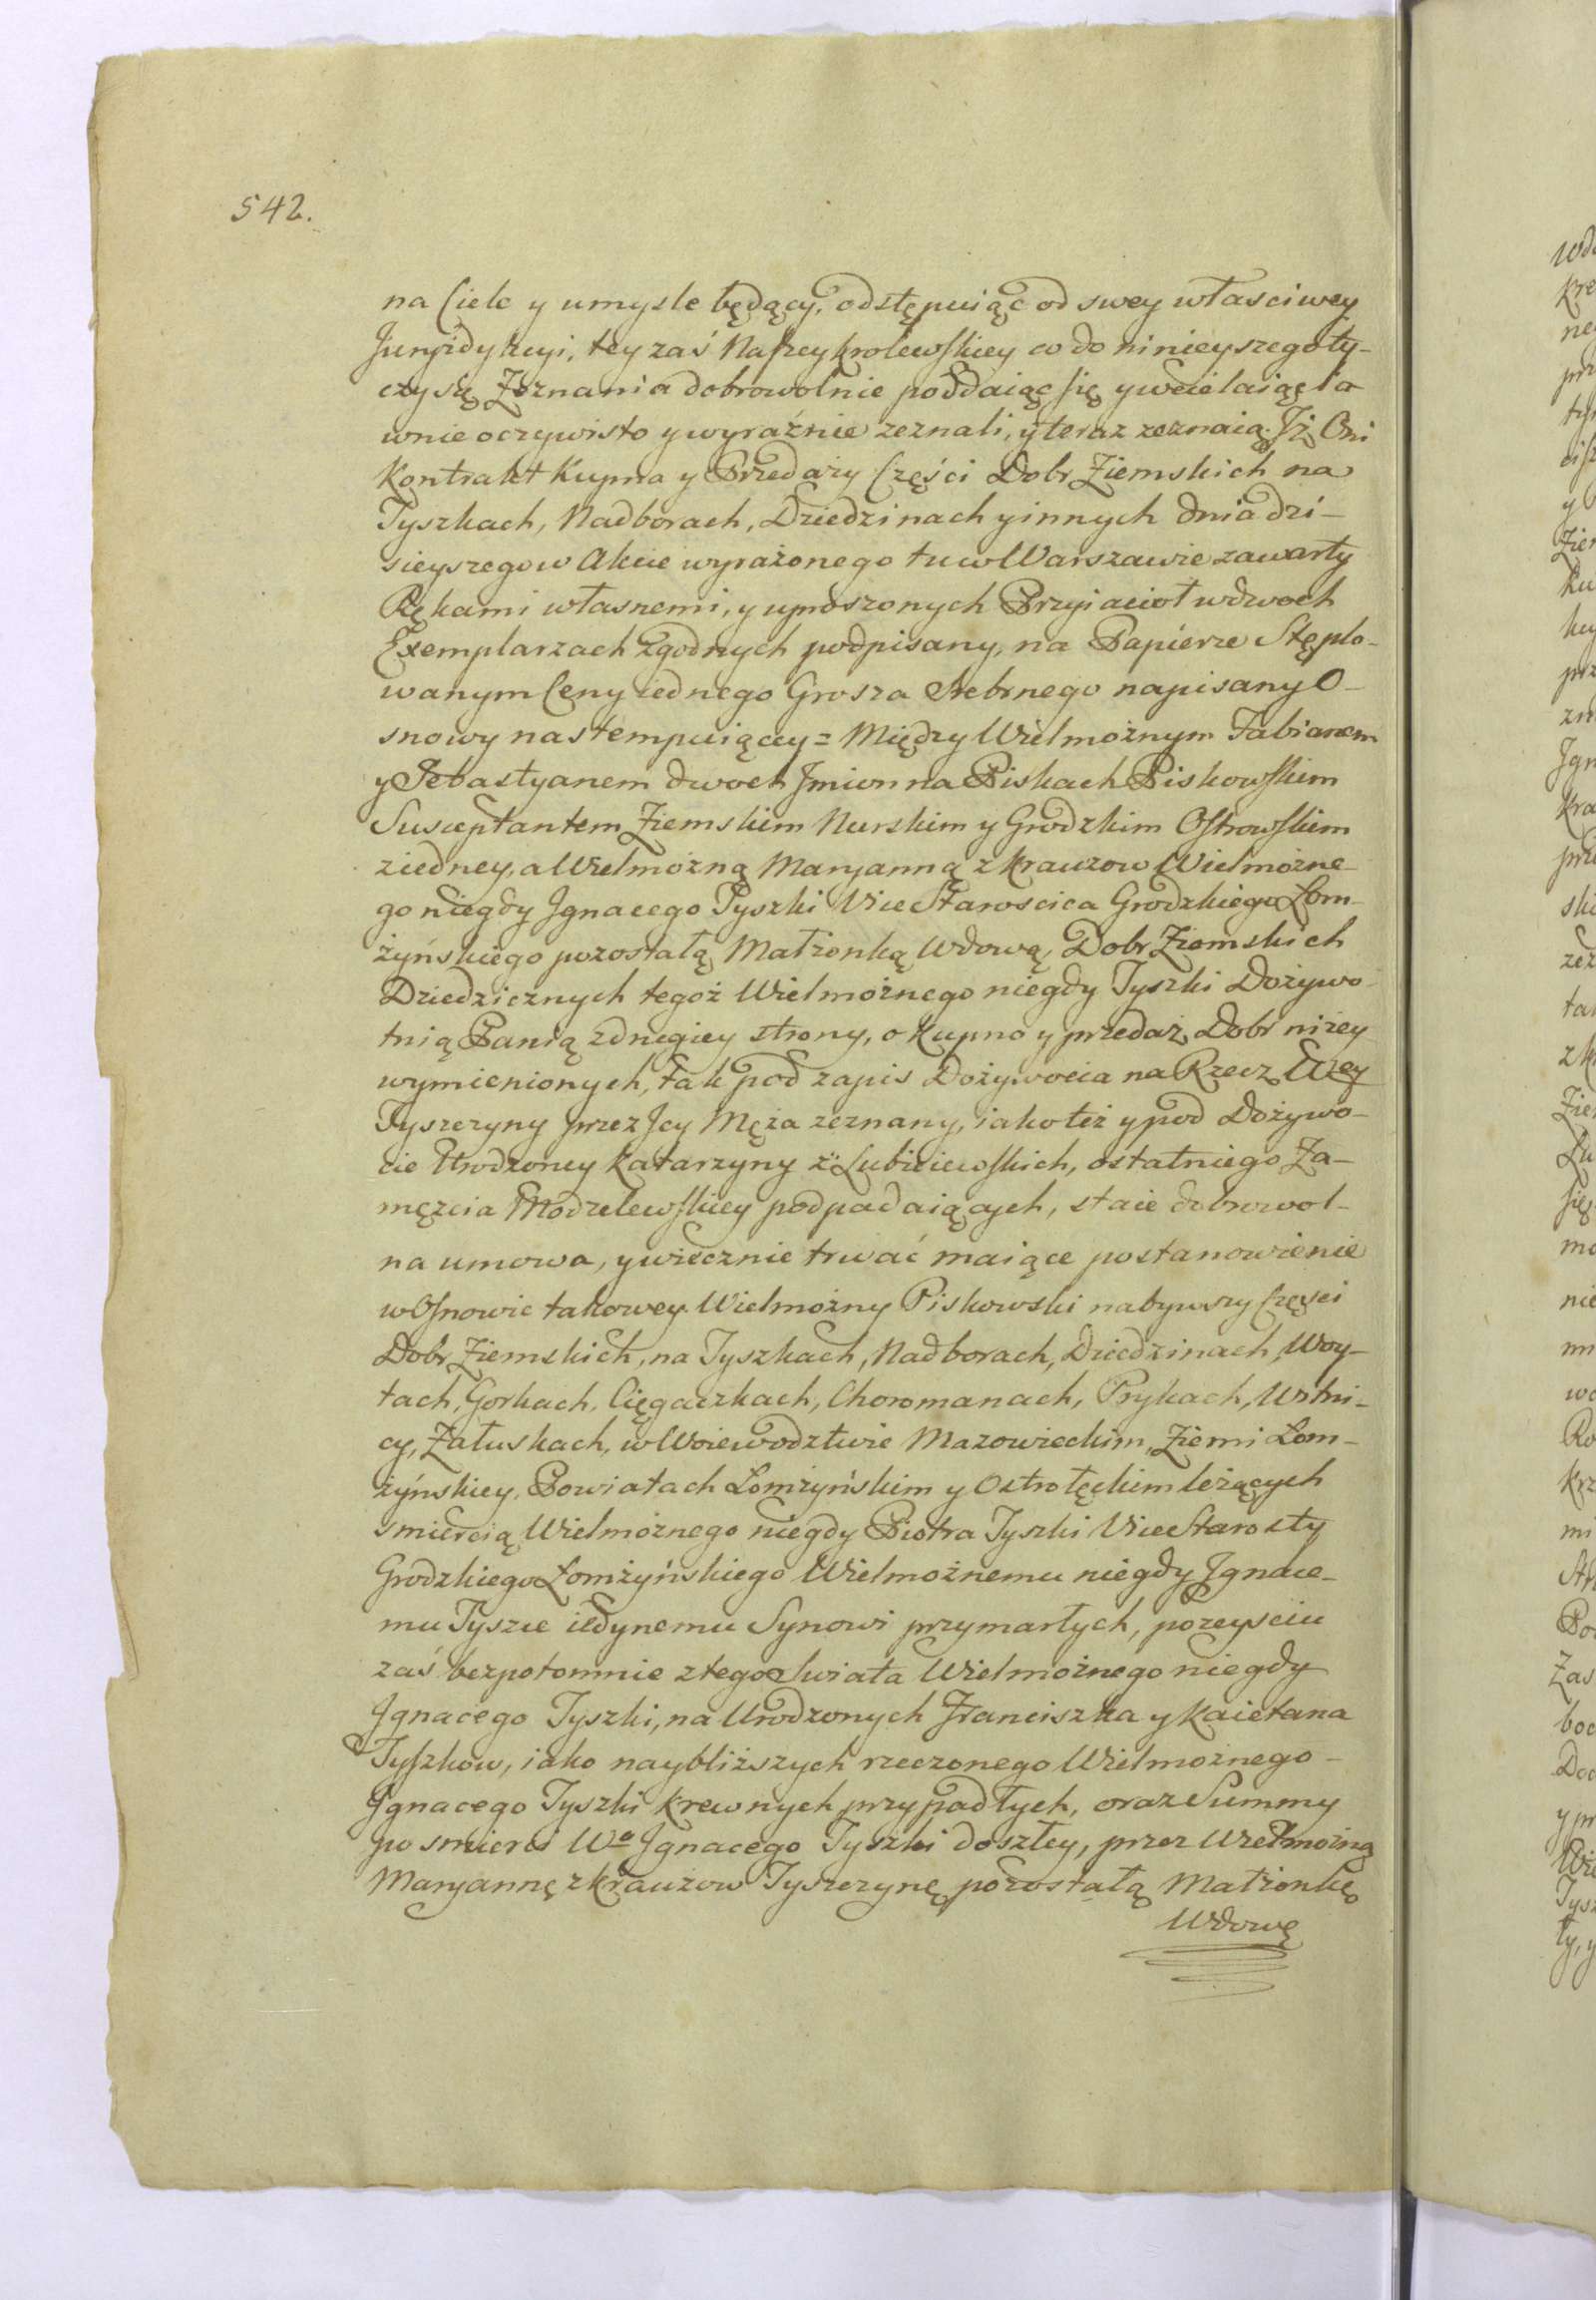 542.
na Ciele y umysle będący, odstępuiąc od swey własciwey
Juryzdykcyi, tey zaś Naszey Krolewskiey co do ninieyszego ty-
czy się Zeznania dobrowolnie poddaiąc się y wcielaiąc ia
wnie oczywisto y wyraźnie zeznali, y teraz zeznaią. Jż Oni
Kontrakt Kupna y Przedaży Części Dobr Ziemskich na
Tyszkach, Nadborach, Dziedzinach y innych dnia dzi-
sieyszego w Akcie wyrażonego tu w Warszawie zawarty
Rękami własnemi, y uproszonych Przyiacioł w dwoch
Exemplarzach zgodnych podpisany, na Papierze Stęplo-
wanym Ceny iednego Grosza Srebrnego napisany O-
snowy nastempuiącey = Między Wielmożnym Fabianem
y Sebastyanem dwoch Jmion na Piskach Piskowskim
Susceptantem Ziemskim Nurskim y Grodzkim Ostrowskim
z iedney, a Wielmożną Maryanną z Krauzow Wielmożne-
go niegdy Jgnacego Tyszki Vice Staroscica Grodzkiego Łom-
żyńskiego pozostałą Małżonką Wdową, Dobr Ziemskich
Dziedzicznych tegoż Wielmożnego niegdy Tyszki Dożywo-
tnią Panią z drugiey strony, o kupno y przedaż Dobr niżey
wymienionych, tak pod zapis Dożywocia na Rzecz Wey
Tyszczyny przez Jey Męża zeznany, iako też y pod Dożywo-
cie Urodzoney Katarzyny z Lubiciewskich, ostatniego Za-
męzcia Modzelewskiey podpadaiących, staie dobrowol-
na umowa, y wiecznie trwać maiące postanowienie
w Osnowie takowey. Wielmożny Piskowski nabywszy Części
Dobr Ziemskich, na Tyszkach, Nadborach, Dziedzinach, Woy-
tach, Gorkach, Ciągaczkach, Choromanach, Psykach, Ustni-
cy, Załuskach, w Woiewodztwie Mazowieckim, Ziemi Łom-
żyńskiey, Powiatach Łomżyńskim y Ostrołęckim leżących
smiercią Wielmożnego niegdy Piotra Tyszki Vice Starosty
Grodzkiego Łomżyńskiego Wielmożnemu niegdy Jgnace-
mu Tyszce iedynemu Synowi przymarłych, po zeysciu
zaś bezpotomnie z tego Swiata Wielmożnego niegdy
Jgnacego Tyszki, na Urodzonych Franciszka y Kaietana
Tyszkow, iako naybliższych rzeczonego Wielmożnego
Jgnacego Tyszki krewnych przypadłych, oraz Summy
po smierci Wo Jgnacego Tyszki doszłey, przez Wielmożną
Maryannę z Krauzow Tyszczynę pozostałą Małżonkę
Wdowę